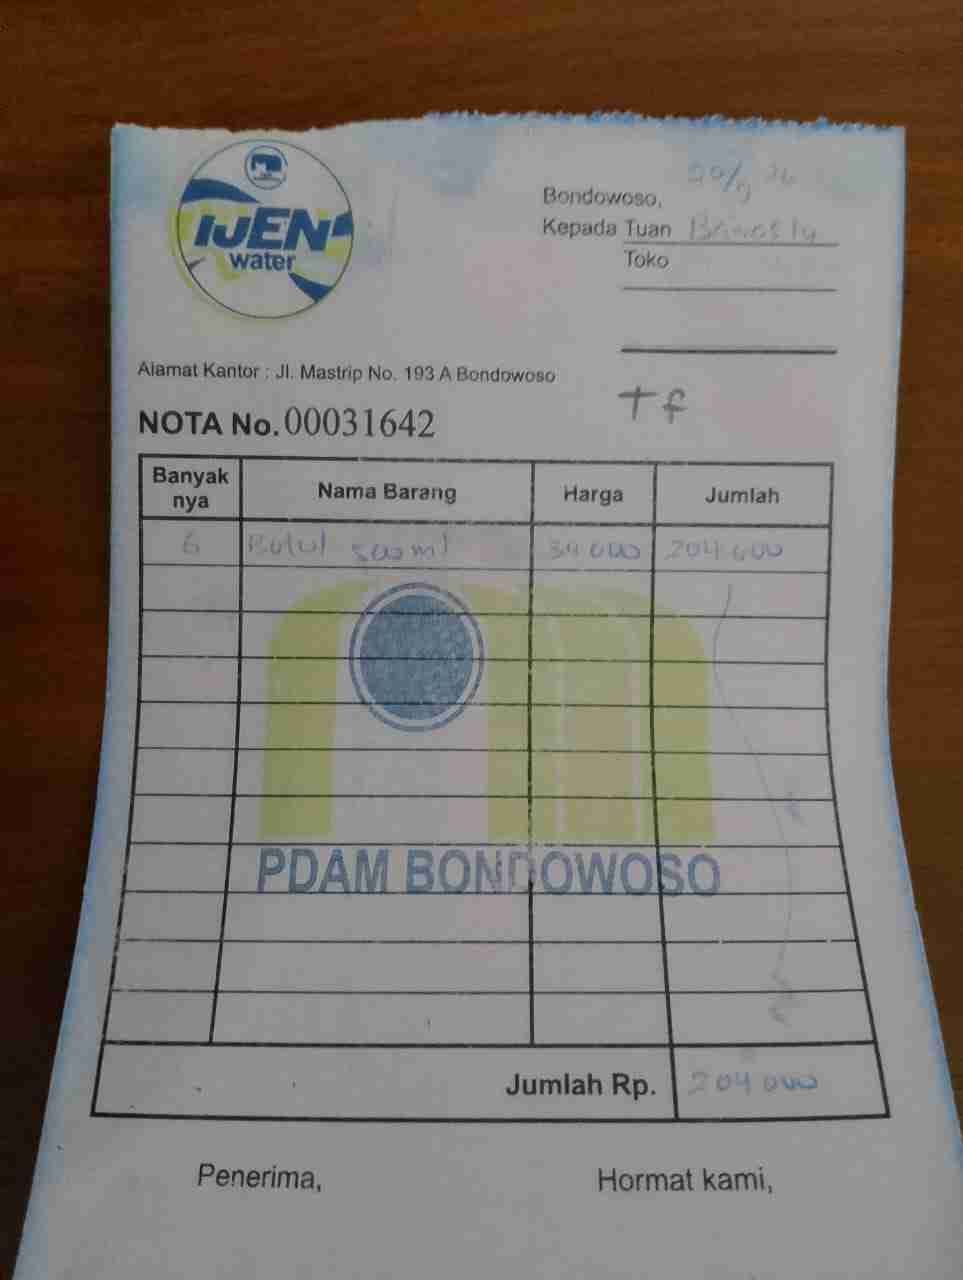 IJEN
water
Bondowoso,
Kepada Tuan
Toko
Alamat Kantor : Jl. Mastrip No. 193 A Bondowoso
Tf
NOTA No. 00031642
Banyak nya Nama Barang Harga Jumlah
6 Botol 500 ml 34 000 204 000
PDAM BONDOWOSO
Jumlah Rp. 204 000
Penerima, Hormat kami,